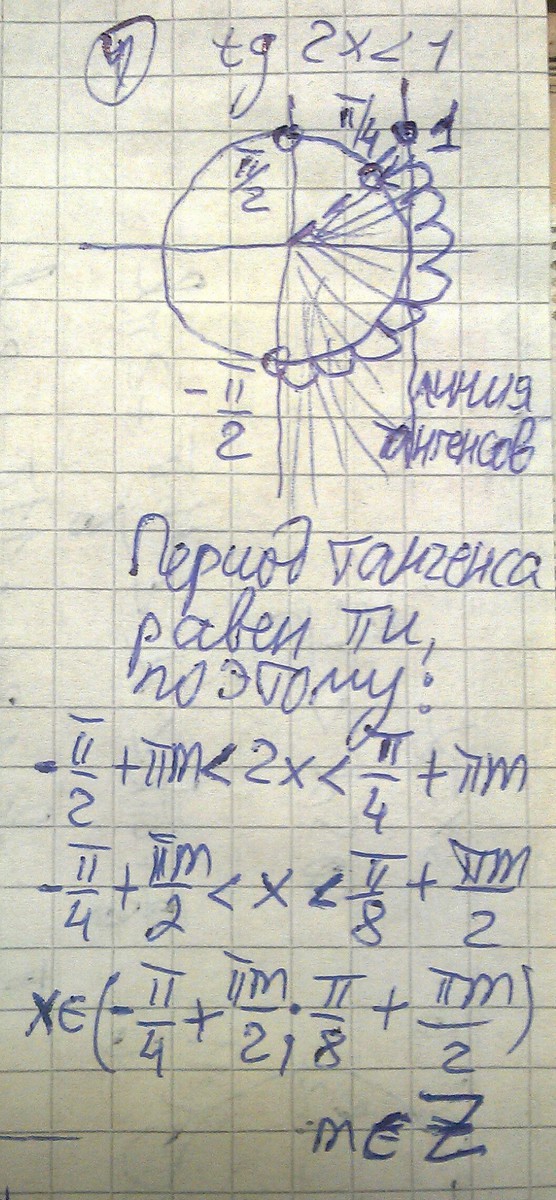 4 tg 2x < 1
π/4 1
π/2
-π/2
линия
тангенсов
Период тангенса
равен пи,
поэтому:
-π/2 + πm < 2x < π/4 + πm
-π/4 + πm/2 < x < π/8 + πm/2
x ∈ (-π/4 + πm/2; π/8 + πm/2)
m ∈ Z